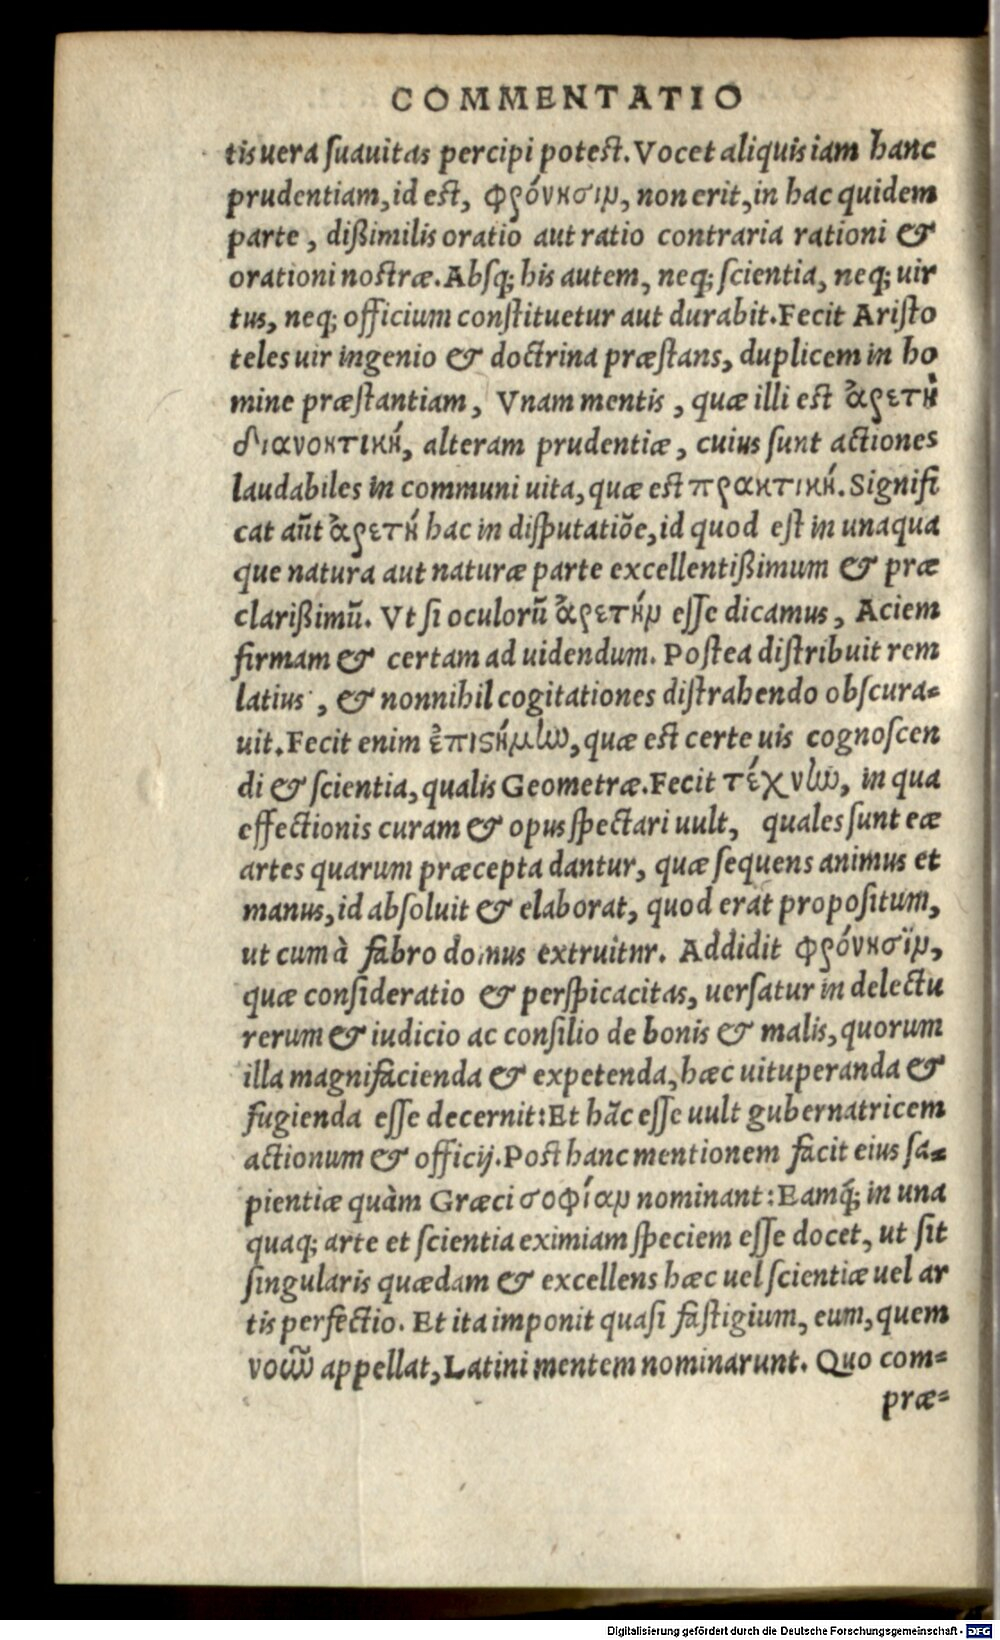 COMMENTATIO
tis uera ſuauitas percipi poteſt. Vocet aliquis iam hanc
prudentiam, id eſt, φρόνησιν, non erit, in hac quidem
parte, dißimilis oratio aut ratio contraria rationi &
orationi noſtræ. Abſq; his autem, neq; ſcientia, neq; uir
tus, neq; officium conſtituetur aut durabit. Fecit Ariſto
teles uir ingenio & doctrina præſtans, duplicem in ho
mine præſtantiam, Vnam mentis, quæ illi eſt ἀρετὴ
διανοητική, alteram prudentiæ, cuius ſunt actiones
laudabiles in communi uita, quæ eſt πρακτική. Signifi
cat aūt ἀρετή hac in diſputatiõe, id quod eſt in unaqua
que natura aut naturæ parte excellentißimum & præ
clarißimū. Vt ſi oculorū ἀρετήν eſſe dicamus, Aciem
firmam & certam ad uidendum. Poſtea diſtribuit rem
latius, & nonnihil cogitationes diſtrahendo obſcura-
uit. Fecit enim ἐπιϛήμην, quæ eſt certe uis cognoſcen
di & ſcientia, qualis Geometræ. Fecit τέχνην, in qua
effectionis curam & opus ſpectari uult, quales ſunt eæ
artes quarum præcepta dantur, quæ ſequens animus et
manus, id abſoluit & elaborat, quod erat propoſitum,
ut cum à fabro domus extruitnr. Addidit φρόνησϊν,
quæ conſideratio & perſpicacitas, uerſatur in delectu
rerum & iudicio ac conſilio de bonis & malis, quorum
illa magnifacienda & expetenda, hæc uituperanda &
fugienda eſſe decernit: Et hãc eſſe uult gubernatricem
actionum & officij. Poſt hanc mentionem facit eius ſa-
pientiæ quàm Græci σοφίαν nominant: Eamq́; in una
quaq; arte et ſcientia eximiam ſpeciem eſſe docet, ut ſit
ſingularis quædam & excellens hæc uel ſcientiæ uel ar
tis perfectio. Et ita imponit quaſi faſtigium, eum, quem
νοῦν appellat, Latini mentem nominarunt. Quo com-
præ-
Digitalisierung gefördert durch die Deutsche Forschungsgemeinschaft - DFG